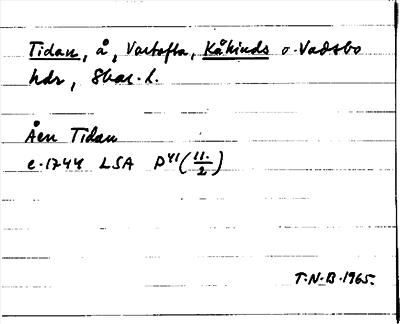 Tidan, å, Vartofta, Kåkinds o. Vadsbo
hdr, Skar. l.
Åen Tidan
c. 1744 LSA P 41 (11./2)
T.N.B. 1965.